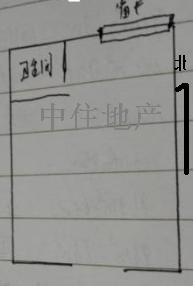 窗户
北
卫生间
中住地产